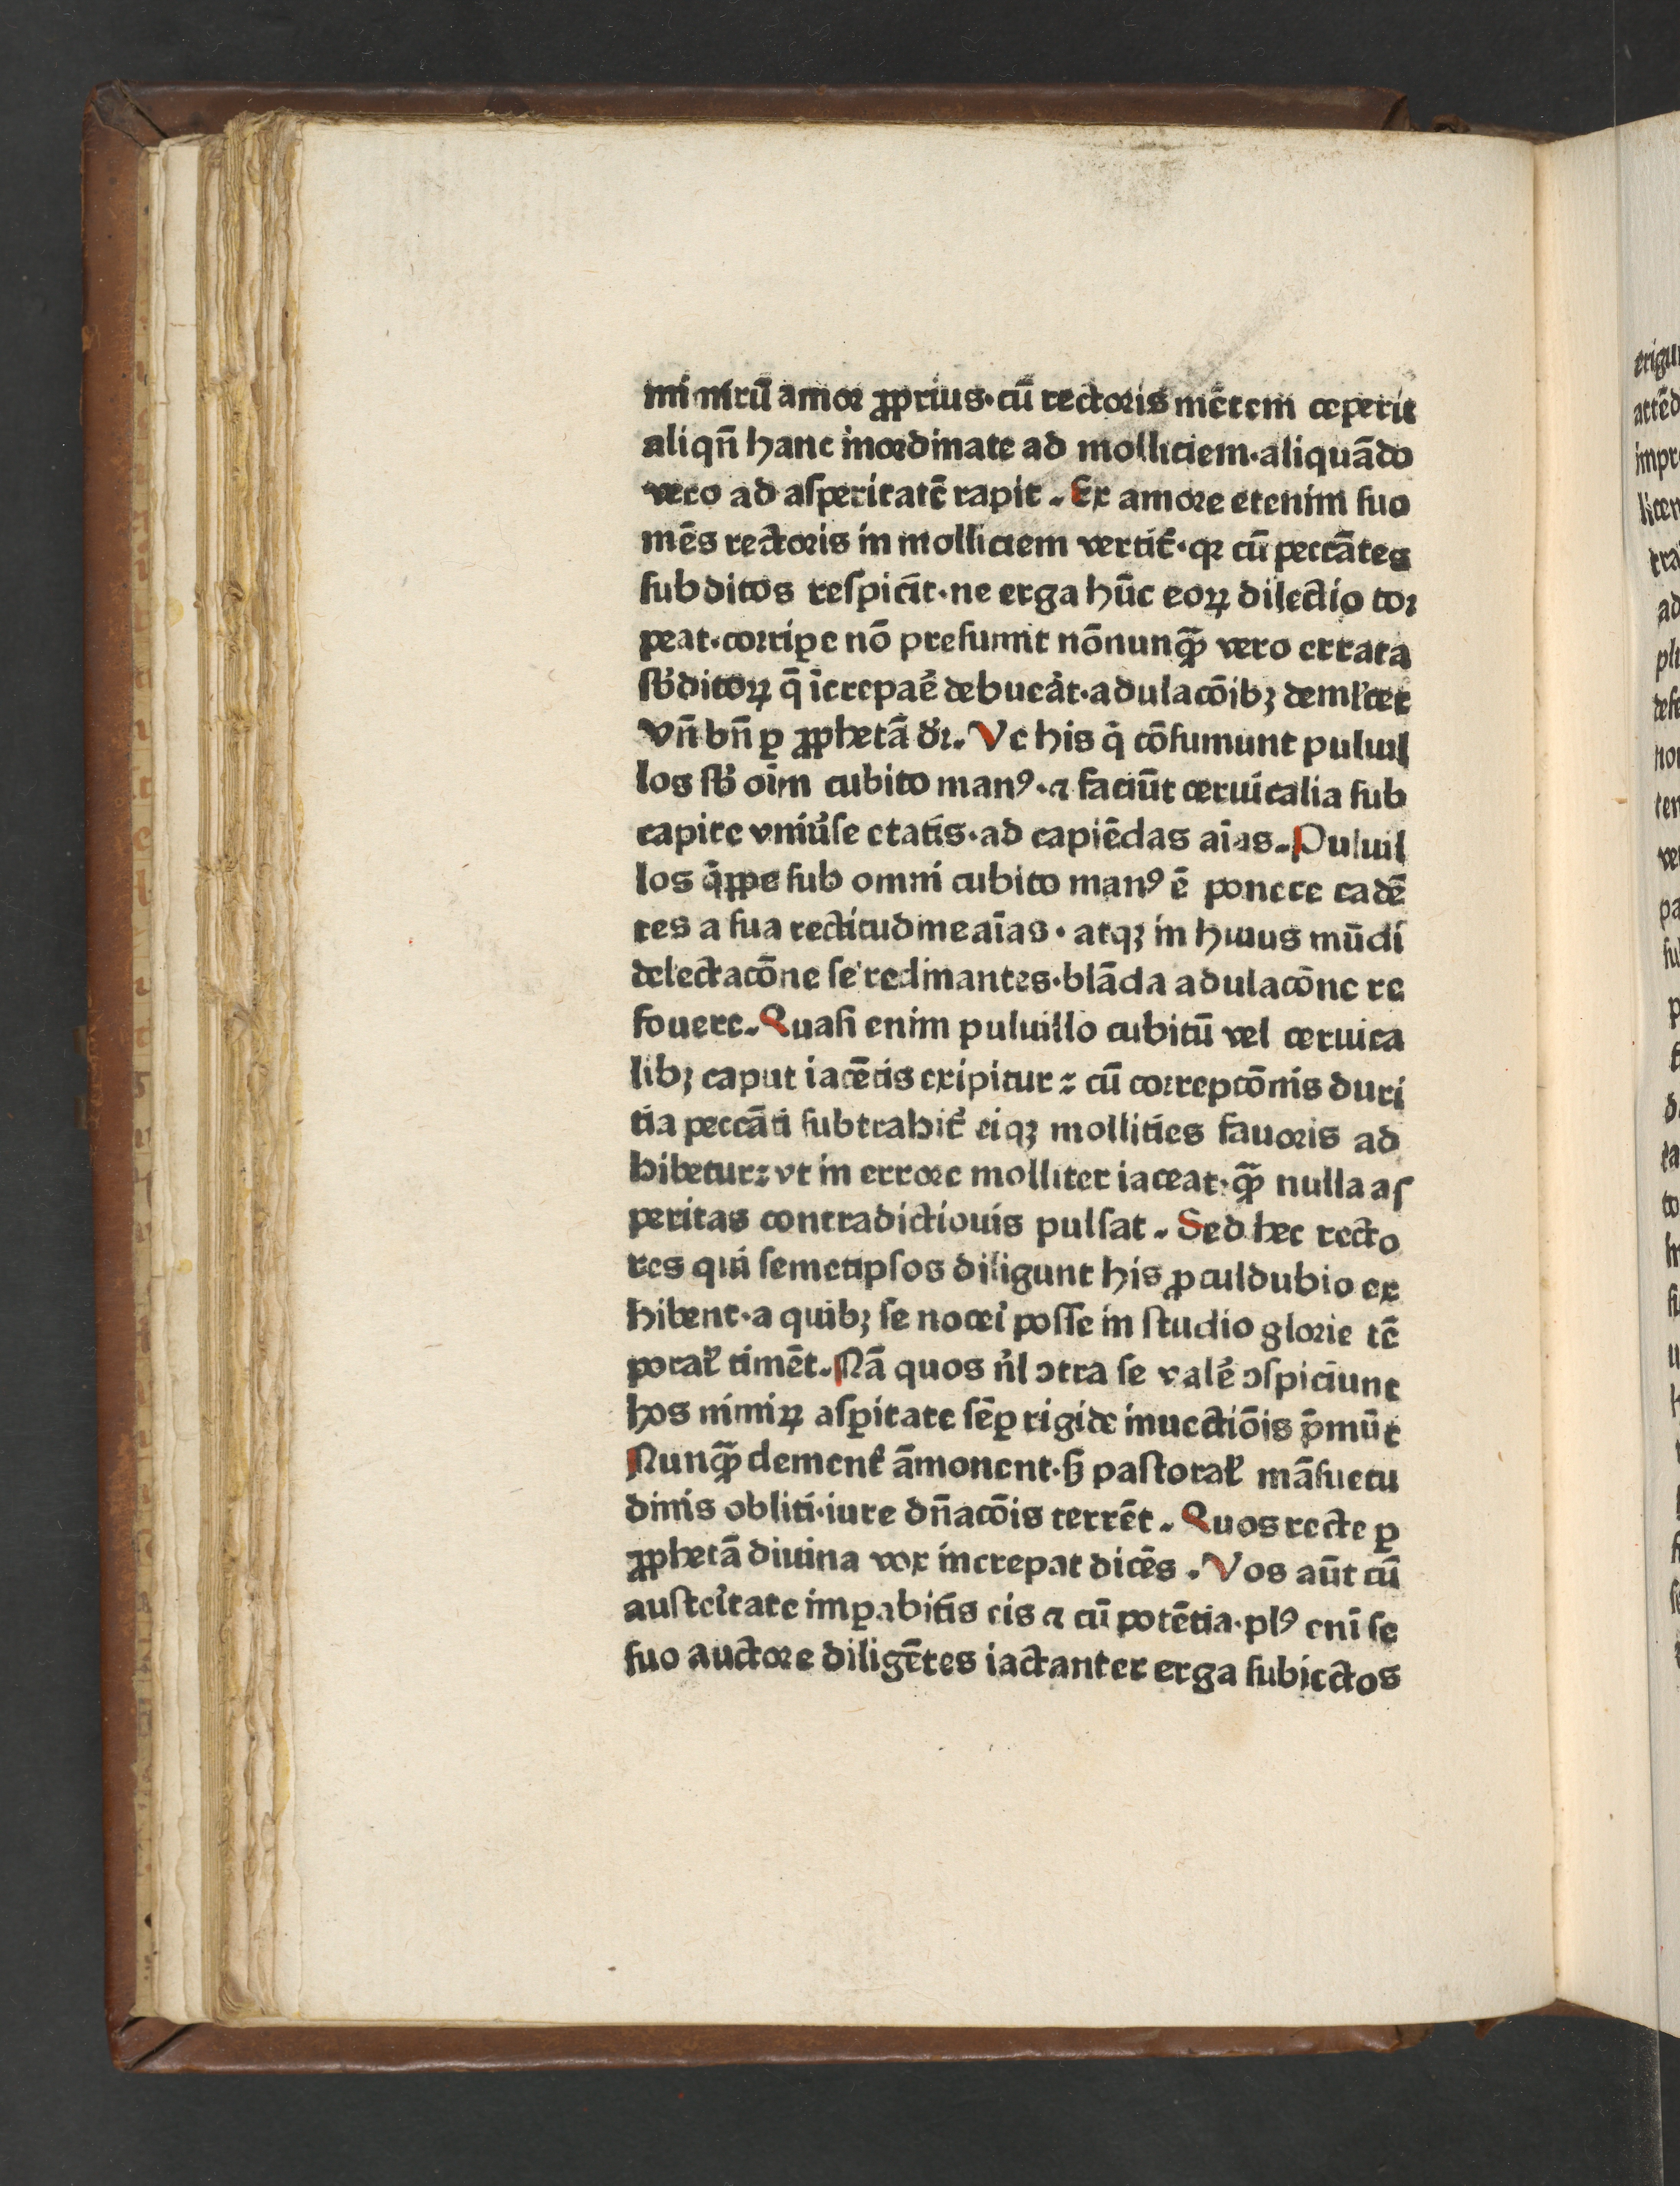 mi nirū amor ꝓprius·cū rectoris mētem ceperit
aliqn̄ hanc inordinate ad molliciem·aliquādo
vero ad aſperitatē rapit. Ex amore etenim ſuo
mēs rectoris in molliciem vertit᷑·qꝛ cū peccātes
ſubditos reſpicit·ne erga hūc eoꝝ dilectio tor
peat·corripe nō preſumit nōnunqꝫ̄ vero errata
ſb̓ditoꝝ q̄ īcrepaē debueāt·adulacōibꝫ demlcet
Vn̄ bn̄ ꝑ ꝓphetā dꝛ̓. Ve his q̇ cōſumunt puluil
los ſb̓ oīm cubito manꝰ·⁊ faciūt ceruicalia ſub
capite vniůſe etatis·ad capiēdas aīas. Puluil
los q̇ppe ſub omni cubito manꝰ ē ponere cadē
tes a ſua rectitudine aīas · atqꝫ in huius mūdi
delectacōne ſe reclinantes·blāda adulacōne re
fouere. Quaſi enim puluillo cubitū vel ceruica
libꝫ caput iacētis excipitur : cū correpcōnis duri
tia peccāti ſubtrahit᷑ eiqꝫ mollities fauoris ad
hibetur: vt in errore molliter iaceat·qꝫ̄ nulla aſ
peritas contradictiouis pulſat . Sed hec recto
res qui ſemetipſos diligunt his ꝓculdubio ex
hibent·a quibꝫ ſe noceī poſſe in ſtudio glorie tē
poral̓ timēt. Nā quos n̓l ↄtra ſe valē ↄſpiciunt
hos nimiꝝ aſꝑitate ſēꝑ rigide inuectiōis p̄mūt
Nunqꝫ̄ clement᷑ āmonent·ſꝫ paſtoral̓ māſuetu
dinis obliti·iure dn̄acōis terrēt . Quos recte ꝑ
ꝓphetā diuina vox increpat dicēs . Vos aūt cū
auſteītate imꝑabitis eis ⁊ cū potētia·plꝰ enī ſe
ſuo auctore diligētes iactanter erga ſubiectos